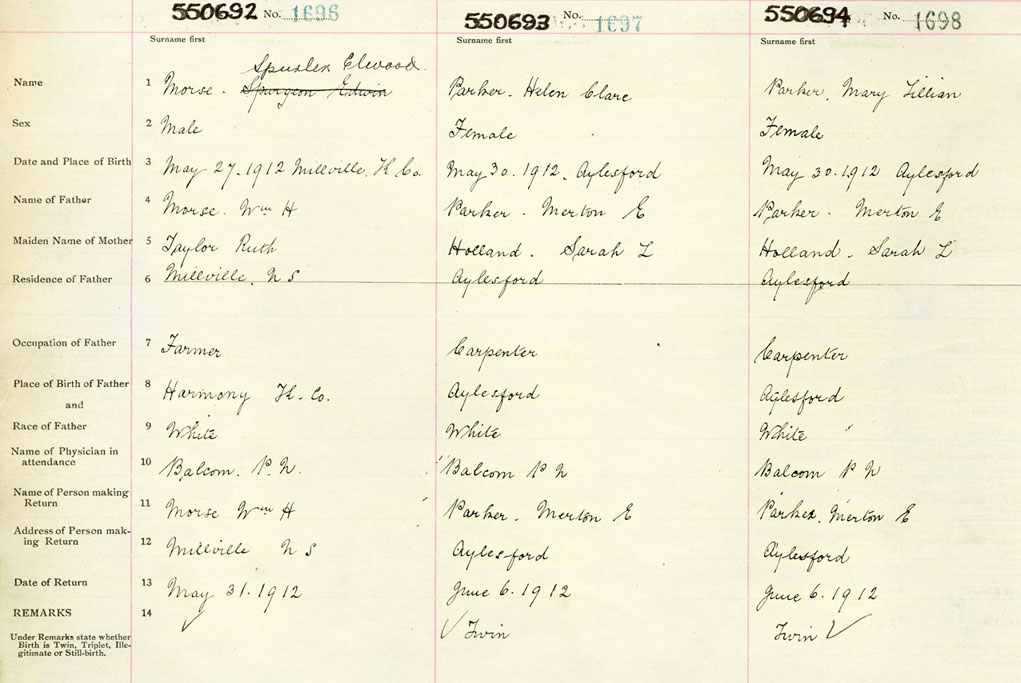 550692 No. 1696 550693 No. 1697 550694 No. 1698
Surname first Surname first Surname first
Spurlex Elwood.
Name 1 Morse. Spurgeon Edwin Parker. Helen Clare Parker, Mary Lillian
Sex 2 Male Female Female
Date and Place of Birth 3 May 27. 1912 Millville. K Co. May 30. 1912. Aylesford May 30. 1912 Aylesford
Name of Father 4 Morse. Wm H Parker. Merton E Parker. Merton E
Maiden Name of Mother 5 Taylor Ruth Holland. Sarah L Holland. Sarah L
Residence of Father 6 Millville. N S Aylesford Aylesford
Occupation of Father 7 Farmer Carpenter Carpenter
Place of Birth of Father 8 Harmony K. Co. Aylesford Aylesford
and
Race of Father 9 White White White
Name of Physician in
attendance 10 Balcom. P. N. Balcom P N Balcom P N
Name of Person making
Return 11 Morse Wm H Parker. Merton E Parker. Merton E
Address of Person mak-
ing Return 12 Millville N S Aylesford Aylesford
Date of Return 13 May 31. 1912 June 6. 1912 June 6. 1912
REMARKS 14 ✓ ✓ Twin Twin ✓
Under Remarks state whether
Birth is Twin, Triplet, Ille-
gitimate or Still-birth.